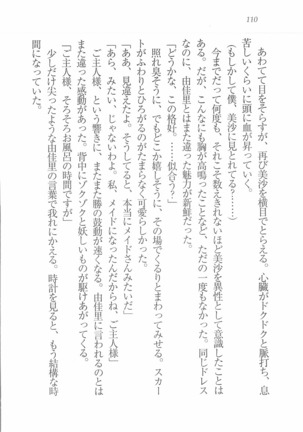 110
あわてて目をそらすが、再び美沙を横目でとらえる。心臓がドクドクと脈打ち、息
苦しいくらいに頭に血が昇っていく。
（もしかして僕、美沙に見とれてる？……）
今までだって何度も、それこそ数えきれないほど美沙を異性として意識したことが
ある。だが、こんなにも胸が高鳴ったことなど、ただの一度もなかった。同じドレス
なのに、由佳里とはまた違った魅力が新鮮だった。
「どうかな、この格好。……似合う？」
照れ臭そうに、でもどこか嬉しそうに、その場でくるりとまわってみせる。スカー
トがふわりとひろがるのがたまらなく可愛らしかった。
「ああ、見違えたよ。そうしてると、本当に『メイドさんみたいだ」
「あら、みたい、じゃないわよ。私、メイドになったんだからね、ご主人様」
ご主人様、という響きに、またまた勝の鼓動が速くなる。由佳里に言われるのとは
また違った感動があった。背中にゾクゾクと妖しいものが駆けあがってくる。
「ご主人様、そろそろお風呂の時間ですが」
少しだけ尖ったような由佳里の言葉で我にかえる。時計を見ると、もう結構な時
間になっていた。